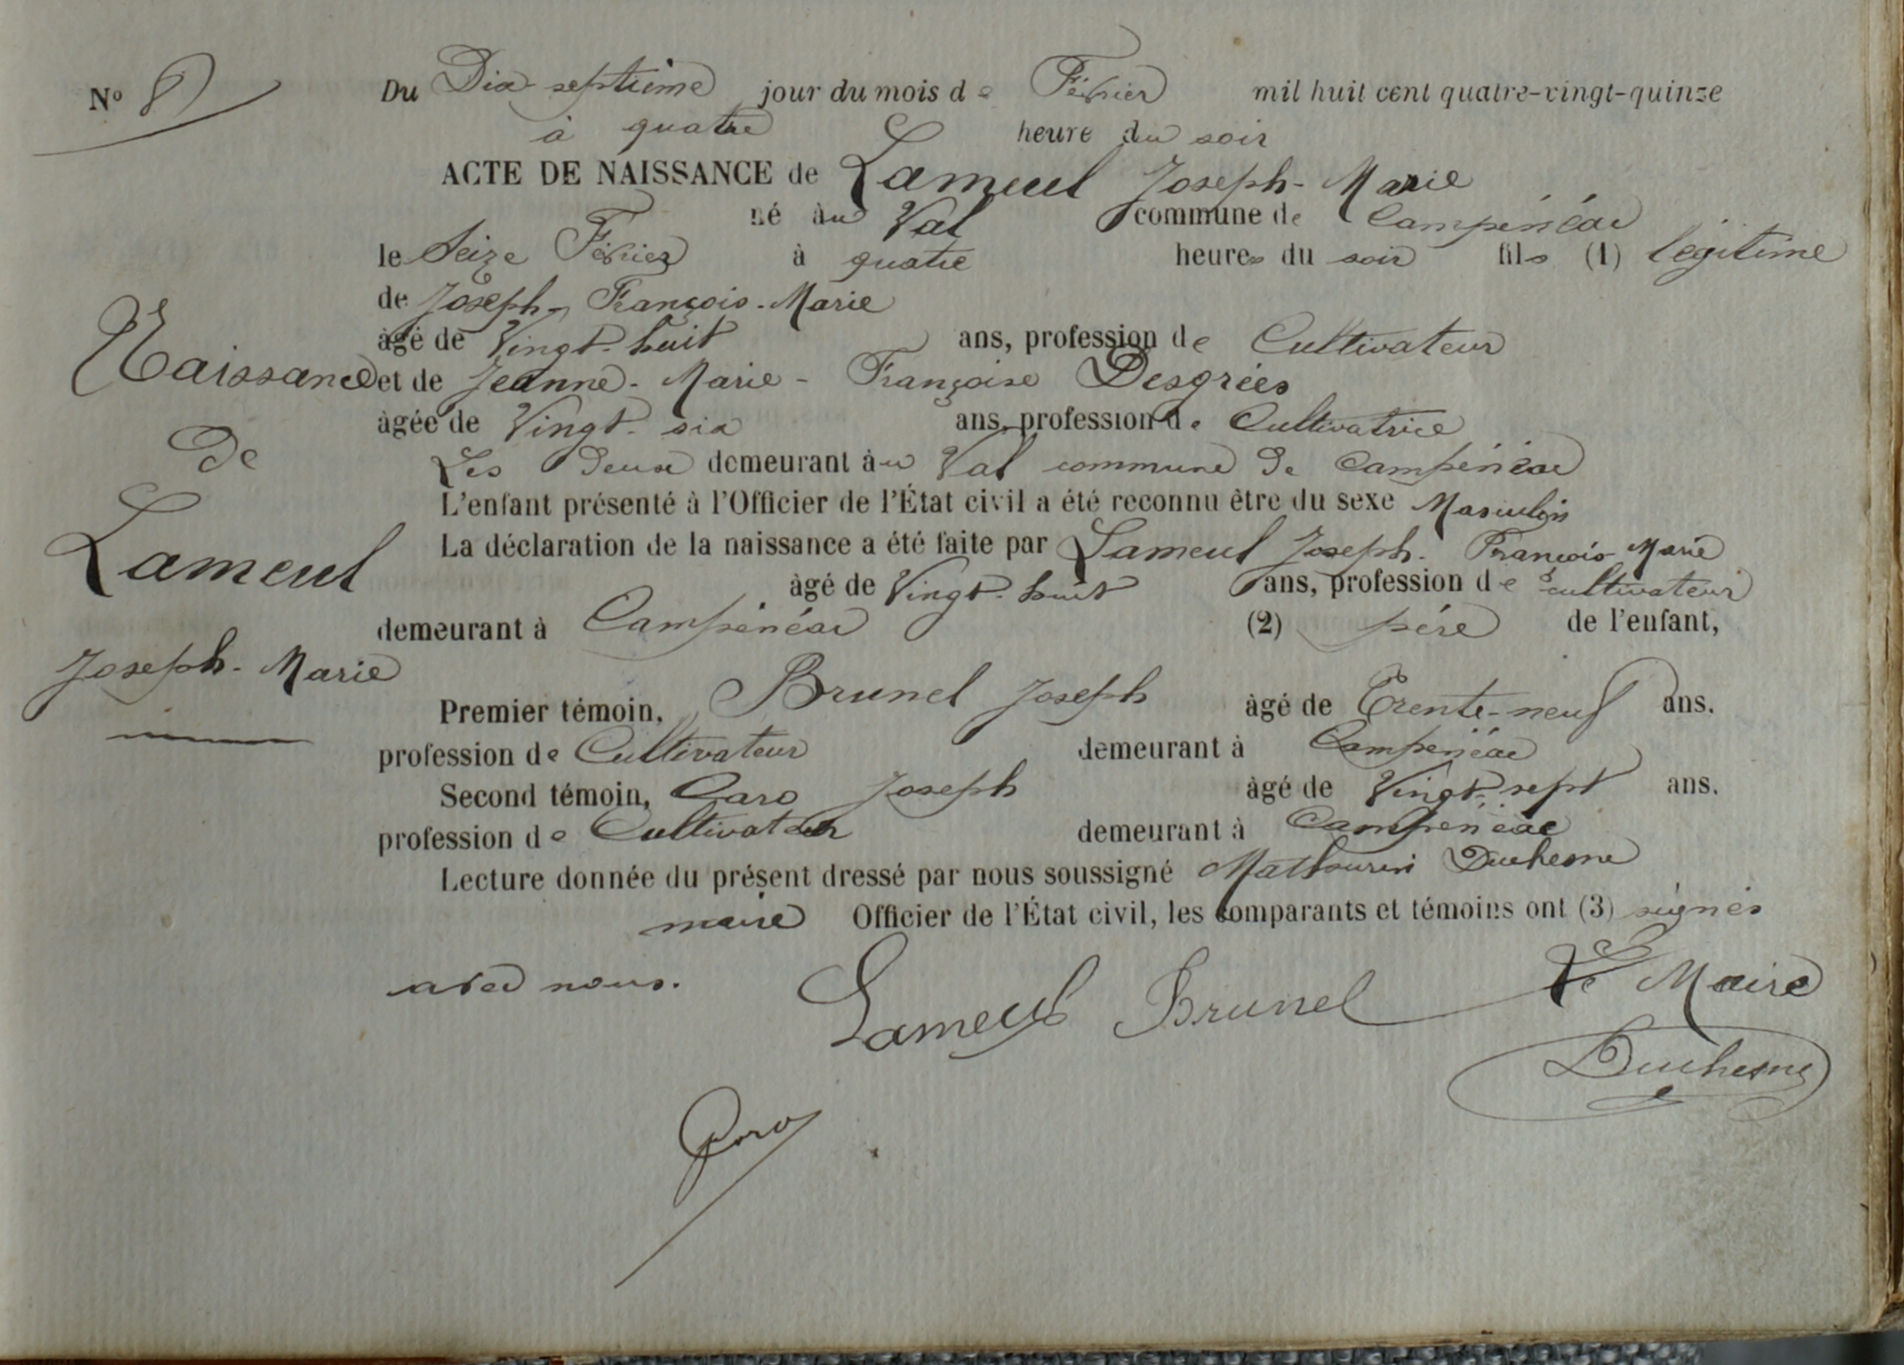 N° 8
Du Dix septième jour du mois de Février mil huit cent quatre-vingt-quinze
à quatre heure du soir
ACTE DE NAISSANCE de Lameul Joseph-Marie
né au Val commune de Campénéac
le Seize Février à quatre heures du soir fils (1) légitime
de Joseph-François-Marie
âgé de Vingt-huit ans, profession de Cultivateur
et de Jeanne-Marie-Françoise Desgrées
âgée de Vingt-six ans, profession de Cultivatrice
Les Deux demeurant au Val commune de Campénéac
L'enfant présenté à l'Officier de l'État civil a été reconnu être du sexe Masculin
La déclaration de la naissance a été faite par Lameul Joseph-François-Marie
âgé de Vingt-huit ans, profession de cultivateur
demeurant à Campénéac (2) père de l'enfant,
Premier témoin, Brunel Joseph âgé de Trente-neuf ans.
profession de Cultivateur demeurant à Campénéac
Second témoin, Caro Joseph âgé de Vingt-sept ans.
profession de Cultivateur demeurant à Campénéac
Lecture donnée du présent dressé par nous soussigné Mathurin Duchesne
maire Officier de l'État civil, les comparants et témoins ont (3) signés
avec nous.
Naissance
de
Lameul
Joseph-Marie
Lameul Brunel Le Maire
Duchesne
Caro